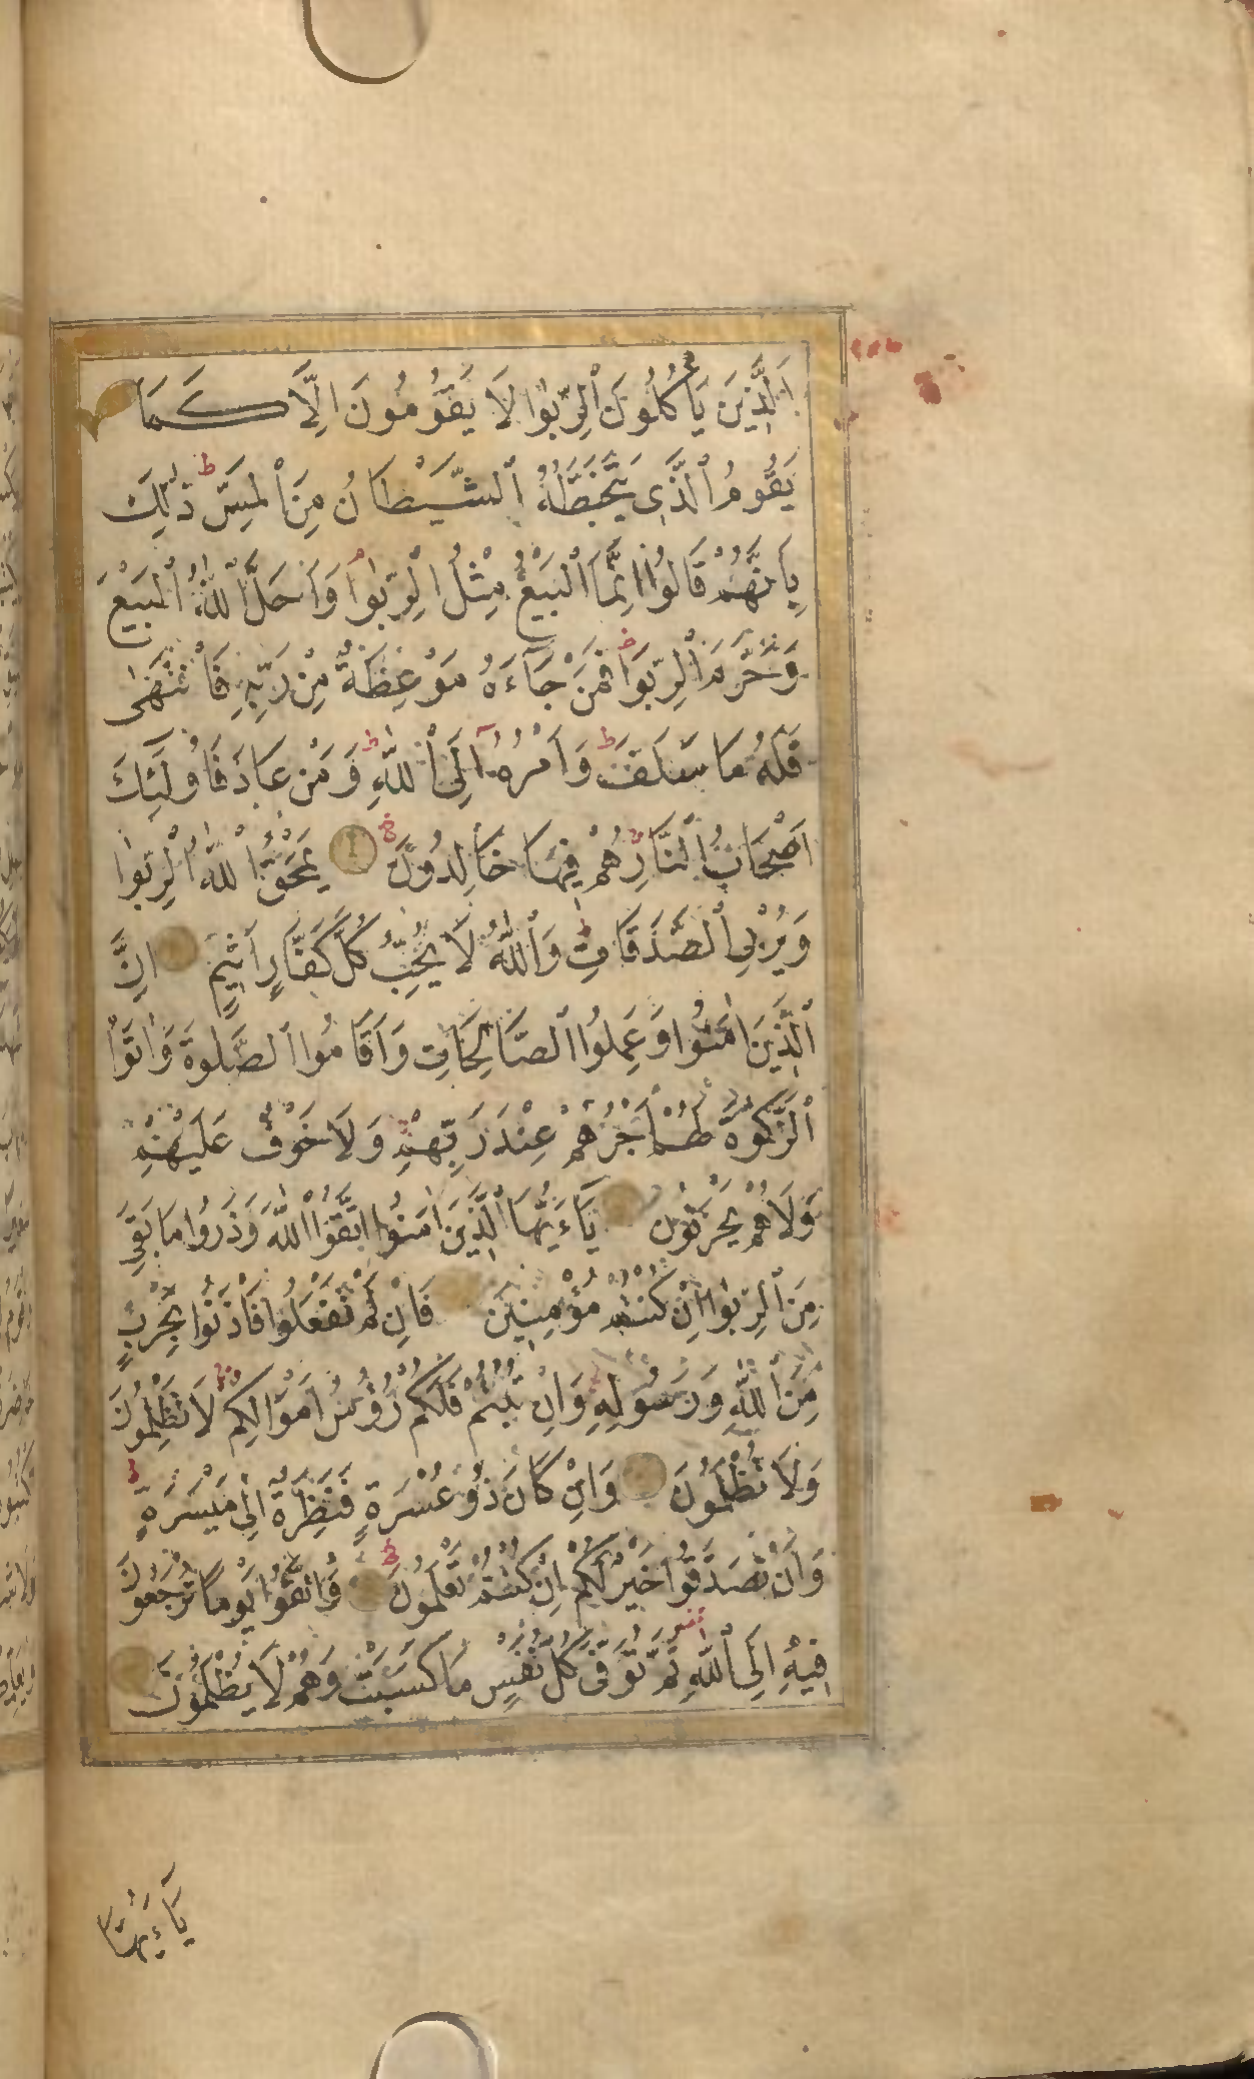 اَلَّذِينَ يَأْكُلُونَ ٱلرِّبٰوا لَا يَقُومُونَ اِلَّا كَمَا
يَقُومُ ٱلَّذِى يَتَخَبَّطُهُ ٱلشَّيْطَانُ مِنَ ٱلْمَسِّ ط ذٰلِكَ
بِاَنَّهُمْ قَالُوا اِنَّمَا ٱلْبَيْعُ مِثْلُ ٱلرِّبٰوا وَاَحَلَّ ٱللّٰهُ ٱلْبَيْعَ
وَحَرَّمَ ٱلرِّبٰوا فَمَنْ جَآءَهُ مَوْعِظَةٌ مِنْ رَبِّهِ فَانْتَهٰى
فَلَهُ مَا سَلَفَ ط وَاَمْرُهُ اِلَى ٱللّٰهِ ط وَمَنْ عَادَ فَاُولٰئِكَ
اَصْحَابُ ٱلنَّارِ هُمْ فِيهَا خَالِدُونَ يَمْحَقُ ٱللّٰهُ ٱلرِّبٰوا
وَيُرْبِى ٱلصَّدَقَاتِ وَٱللّٰهُ لَا يُحِبُّ كُلَّ كَفَّارٍ اَثِيمٍ اِنَّ
ٱلَّذِينَ اٰمَنُوا وَعَمِلُوا ٱلصَّالِحَاتِ وَاَقَامُوا ٱلصَّلٰوةَ وَاٰتَوُا
ٱلزَّكٰوةَ لَهُمْ اَجْرُهُمْ عِنْدَ رَبِّهِمْ وَلَا خَوْفٌ عَلَيْهِمْ
وَلَا هُمْ يَحْزَنُونَ يَآءَيُّهَا ٱلَّذِينَ اٰمَنُوا اتَّقُوا ٱللّٰهَ وَذَرُوا مَا بَقِىَ
مِنَ ٱلرِّبٰوا اِنْ كُنْتُمْ مُؤْمِنِينَ فَاِنْ لَمْ تَفْعَلُوا فَأْذَنُوا بِحَرْبٍ
مِنَ ٱللّٰهِ وَرَسُولِهِ وَاِنْ تُبْتُمْ فَلَكُمْ رُؤُسُ اَمْوَالِكُمْ لَا تَظْلِمُونَ
وَلَا تُظْلَمُونَ وَاِنْ كَانَ ذُو عُسْرَةٍ فَنَظِرَةٌ اِلٰى مَيْسَرَةٍ ط
وَاَنْ تَصَدَّقُوا خَيْرٌ لَكُمْ اِنْ كُنْتُمْ تَعْلَمُونَ وَاتَّقُوا يَوْمًا تُرْجَعُونَ
فِيهِ اِلَى ٱللّٰهِ ثُمَّ تُوَفّٰى كُلُّ نَفْسٍ مَا كَسَبَتْ وَهُمْ لَا يُظْلَمُونَ
يَآءَيُّهَا